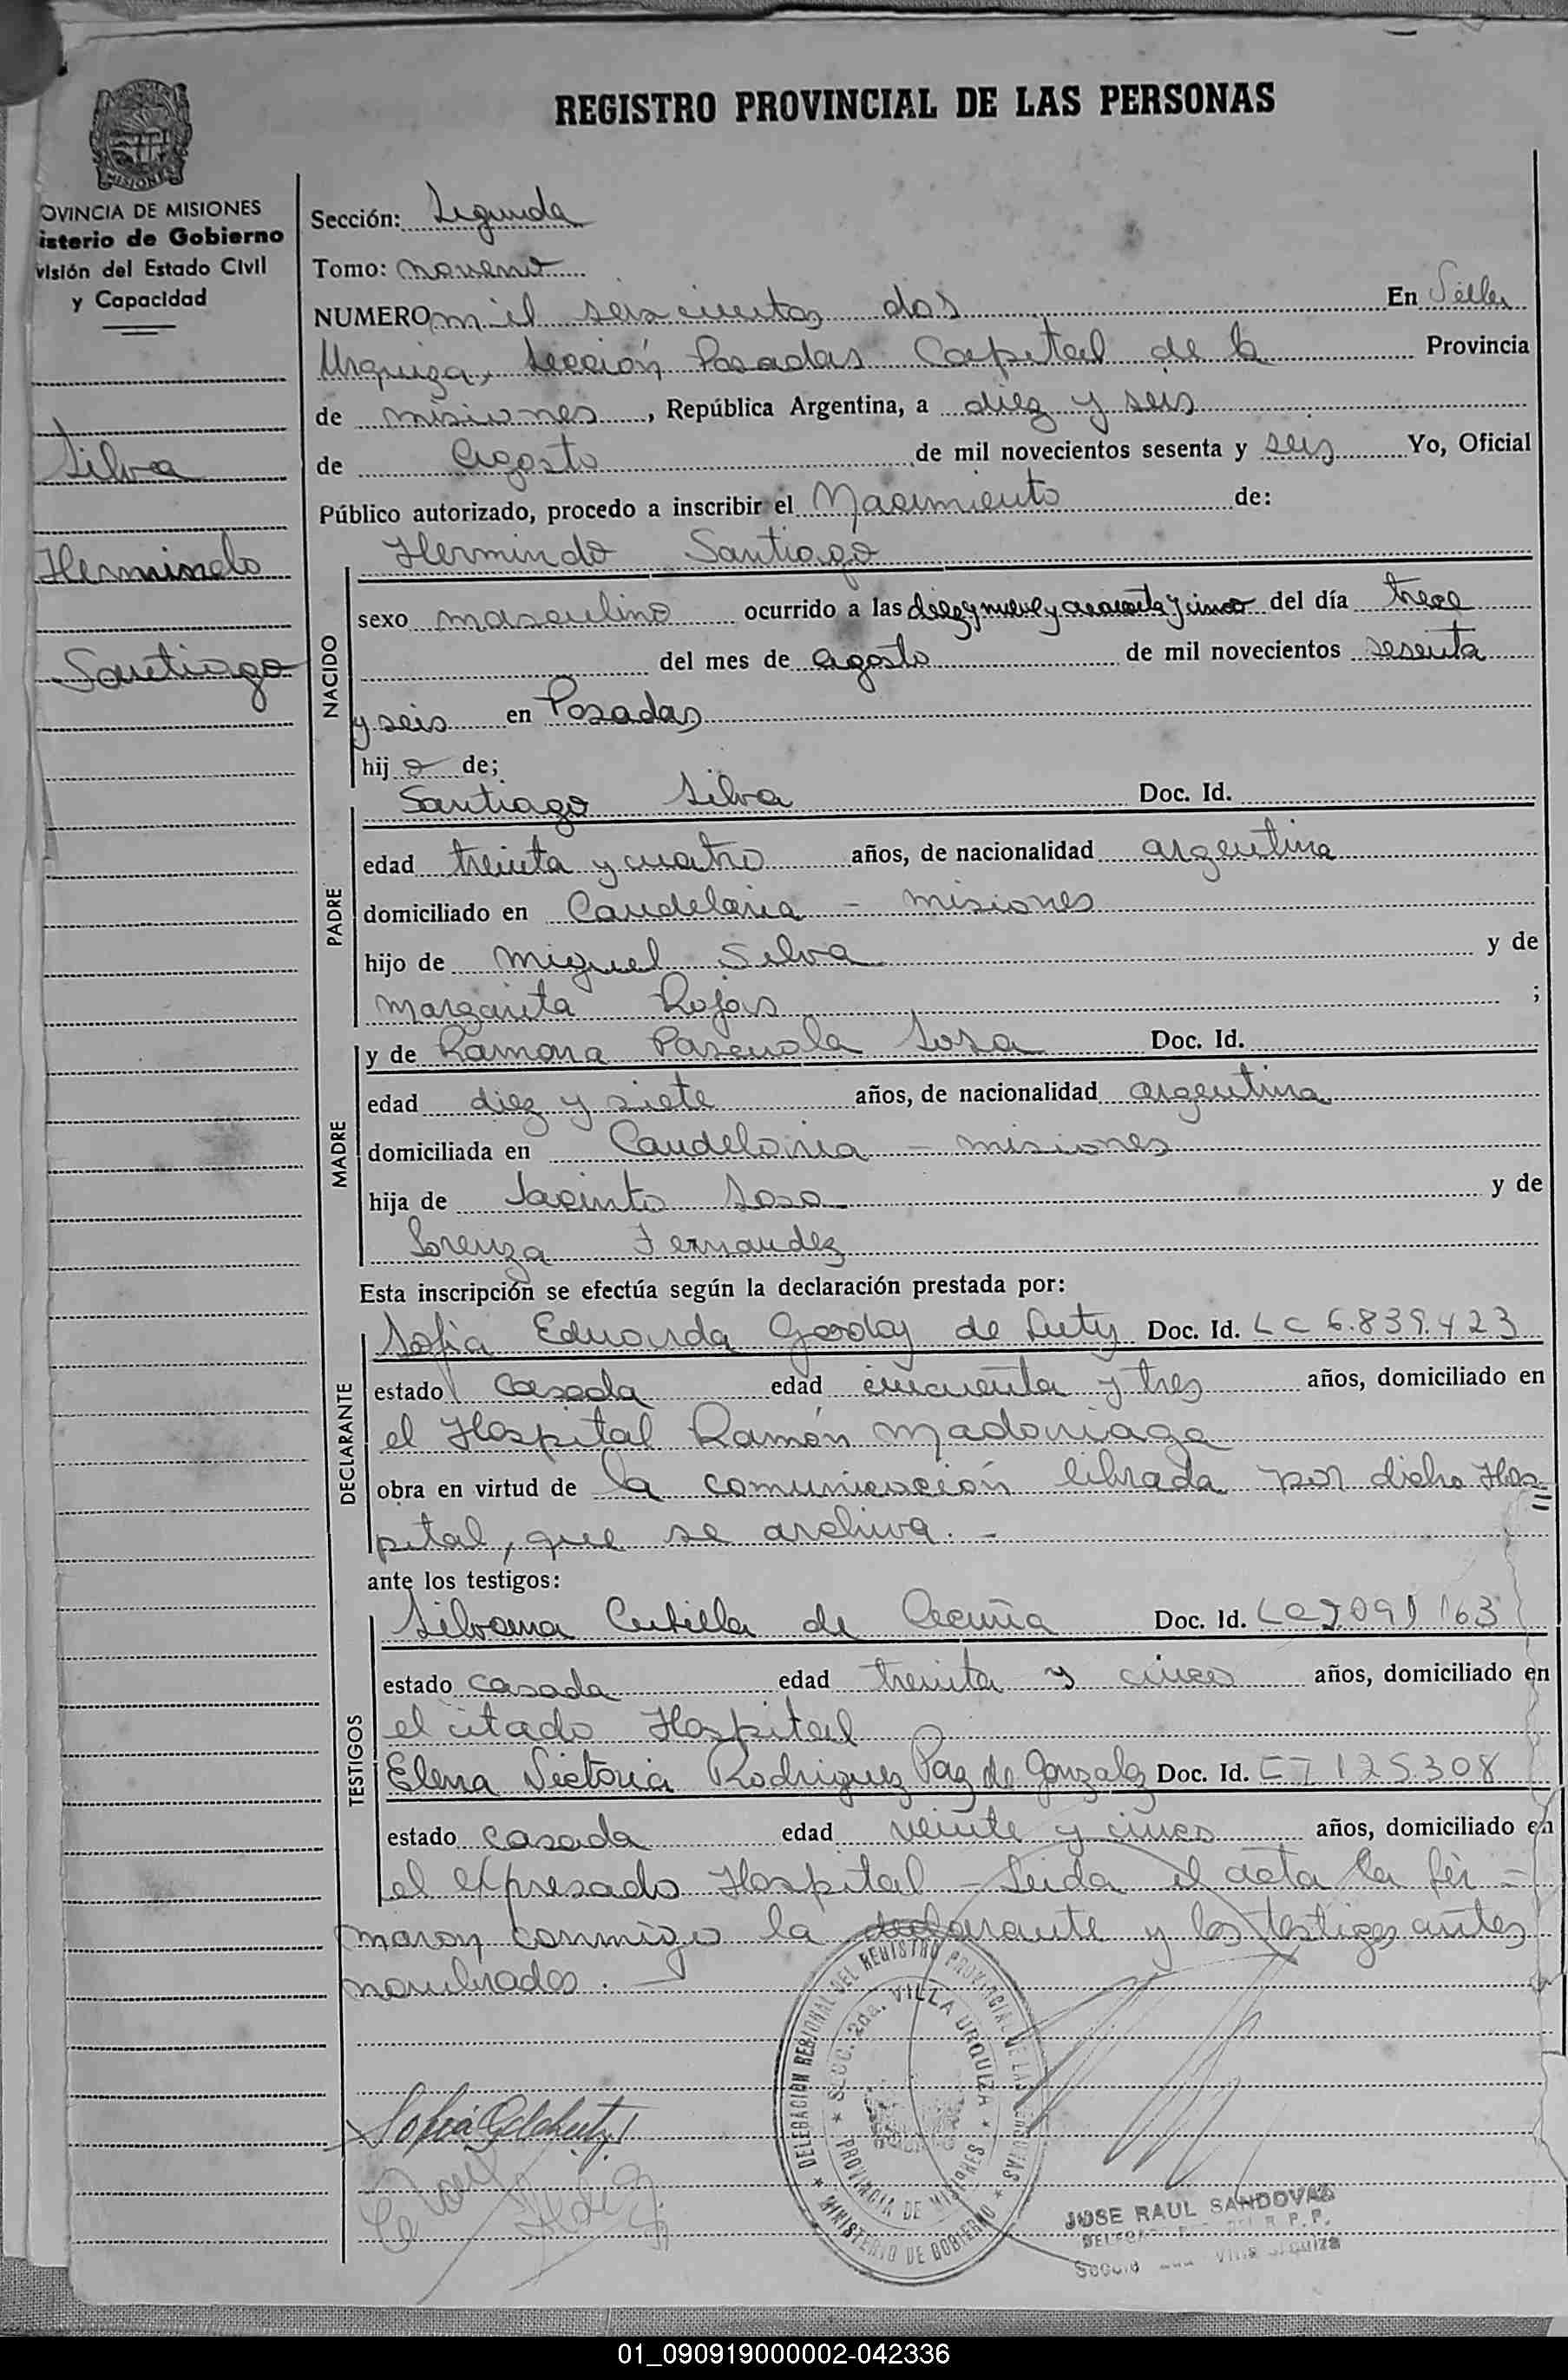 REGISTRO PROVINCIAL DE LAS PERSONAS
MISIONES
OVINCIA DE MISIONES
isterio de Gobierno
visión del Estado Civil
y Capacidad
Silva
Hermindo
Santiago
Sección: Segunda
Tomo: noveno
NUMERO mil seiscientos dos En Villa
Urquiza, Sección Posadas Capital de la Provincia
de misiones, República Argentina, a diez y seis
de Agosto de mil novecientos sesenta y seis Yo, Oficial
Público autorizado, procedo a inscribir el Nacimiento de:
Hermindo Santiago
NACIDO
sexo masculino ocurrido a las diez y nueve y cuarenta y cinco del día trece
del mes de agosto de mil novecientos sesenta
y seis en Posadas
hijo de;
Santiago Silva Doc. Id.
PADRE
edad treinta y cuatro años, de nacionalidad argentina
domiciliado en Candelaria - misiones
hijo de Miguel Silva y de
Margarita Rojas ;
y de Ramona Pascuala Sosa Doc. Id.
MADRE
edad diez y siete años, de nacionalidad argentina
domiciliada en Candelaria - misiones
hija de Jacinto Sosa y de
Lorenza Fernandez
Esta inscripción se efectúa según la declaración prestada por:
Sofia Eduarda Godoy de Duty Doc. Id. LC 6.839.423
DECLARANTE
estado casada edad cincuenta y tres años, domiciliado en
el Hospital Ramón Madoniaga
obra en virtud de la comunicación librada por dicho Hos=
pital, que se archiva. -
ante los testigos:
Silvana de Acuña Doc. Id. LC 2091163
TESTIGOS
estado casada edad treinta y cinco años, domiciliado en
el citado Hospital
Elena Victoria Rodriguez Paz de Gonzalez Doc. Id. CI 125.308
estado casada edad veinte y cinco años, domiciliado en
el expresado Hospital - Leida el acta la fir-
maron conmigo la declarante y los testigos antes
nombrados. -
DELEGACION REGIONAL DEL REGISTRO PROVINCIAL DE LAS PERSONAS
SECC. 2da. VILLA URQUIZA
PROVINCIA DE MISIONES
MINISTERIO DE GOBIERNO
JOSE RAUL SANDOVAL
01_090919000002-042336